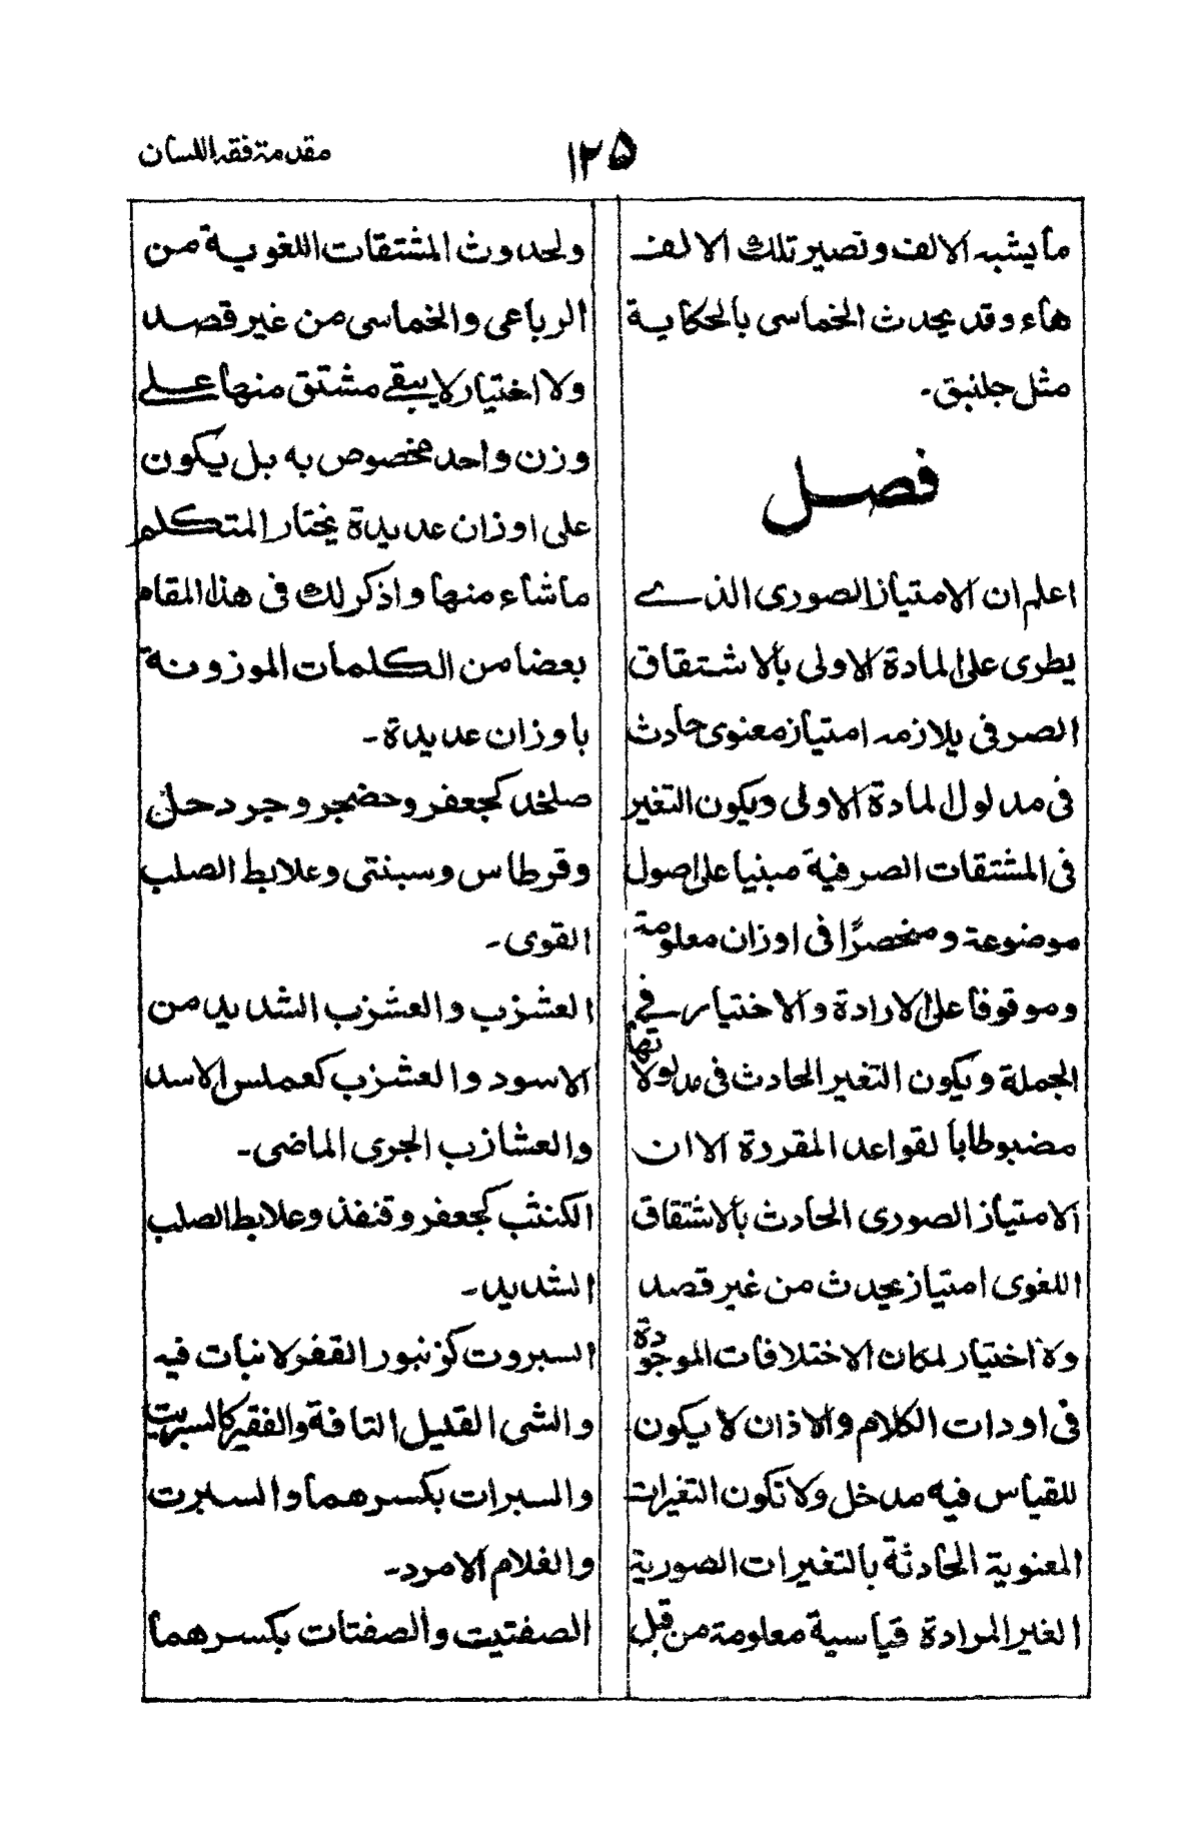 مقدمة فقه اللسان
١٢٥
ما يشبه الالف وتصير تلك الالف
هاء وقد يحدث الخماسى بالحكاية
مثل جلنبق۔
فصل
اعلم ان الامتياز الصورى الذے
يطرى على المادة الاولى بالاشتقاق
الصرفى يلازمه امتياز معنوى حادث
فى مدلول المادة الاولى ويكون التغير
فى المشتقات الصرفية مبنيا على اصول
موضوعة ومنحصرًا فى اوزان معلومة
وموقوفا على الارادة والاختيار فے
الجملة ويكون التغير الحادث فى مدلولاتها
مضبوطا بالقواعد المقررة الا ان
الامتياز الصورى الحادث بالاشتقاق
اللغوى امتياز يحدث من غير قصد
ولا اختيار لمكان الاختلافات الموجودة
فى اودات الكلام والاذان لا يكون
للقياس فيه مدخل ولا تكون التغيرات
المعنوية الحادثة بالتغيرات الصورية
الغير المرادة قياسية معلومة من قبل
ولحدوث المشتقات اللغوية من
الرباعى والخماسى من غير قصد
ولا اختيار لا يبقے مشتق منها علے
وزن واحد مخصوص به بل يكون
على اوزان عديدة يختار المتكلم
ما شاء منها واذكر لك فى هذا المقام
بعضا من الكلمات الموزونة
باوزان عديدة۔
صلخد كجعفر وحضجر وجردحل
وقرطاس وسبنتى وعلابط الصلب
القوى۔
العشزب والعشزب الشديد من
الاسود والعشزب كعملس الاسد
والعشازب الجرى الماضى۔
الكنثب كجعفر وقنفذ وعلابط الصلب
الشديد۔
السبروت كزنبور القفر لا نبات فيه
والشى القليل التافة والفقير كالسبريت
والسبرات بكسرهما والسبرت
والغلام الامرد۔
الصفتيت والصفتات بكسرهما